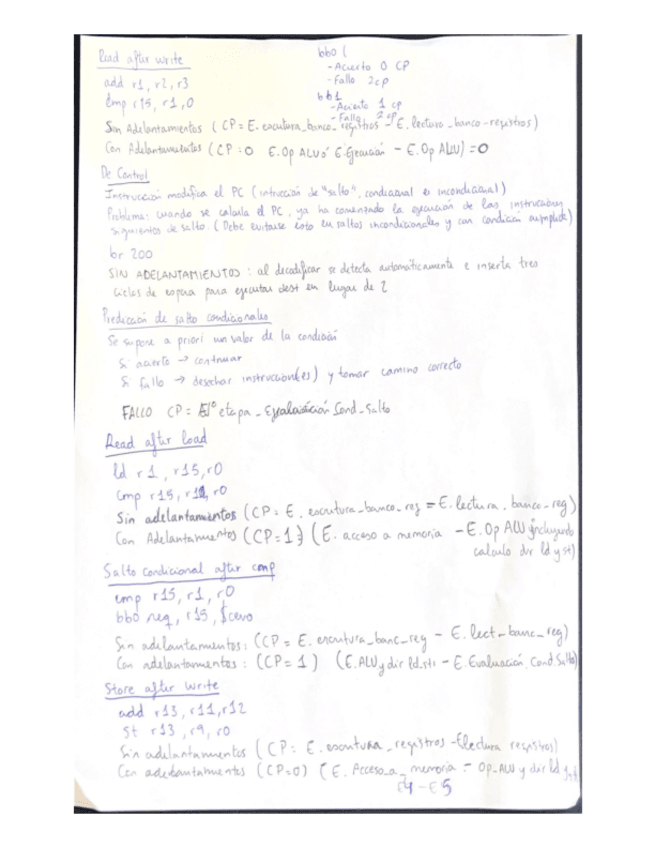 Read after write
add r1, r2, r3
cmp r15, r1, 0
bb0 (
- Acierto 0 CP
- Fallo 2cp
bb1
- Acierto 1 cp
- Fallo 2 cp
Sin Adelantamientos (CP = E. escritura_banco_registros - E. lectura_banco-registros)
Con Adelantamientos (CP = 0 E. Op ALU ó E. Ejecución - E. Op ALU) = 0
De Control
Instrucción modifica el PC (intrucción de "salto", condicional e incondicional)
Problema: cuando se calcula el PC, ya ha comenzado la ejecución de las instrucciones
siguientes de salto. (Debe evitarse esto en saltos incondicionales y con condición cumplida)
br 200
SIN ADELANTAMIENTOS: al decodificar se detecta automáticamente e inserta tres
ciclos de espera para ejecutar dest en lugar de 2
Predicción de salto condicionales
Se supone a priori un valor de la condición
Si acierto → continuar
Si fallo → desechar instruccion(es) y tomar camino correcto
FALLO CP = 1º etapa - Evaluación Cond_Salto
Read after load
ld r1, r15, r0
cmp r15, r1, r0
Sin adelantamientos (CP = E. escritura_banco_reg = E. lectura_banco_reg)
Con Adelantamientos (CP = 1) (E. acceso a memoria - E. Op ALU incluyendo
calculo dir ld y st)
Salto condicional after cmp
cmp r15, r1, r0
bb0 neq, r15, $cero
Sin adelantamientos: (CP = E. escritura_banc_reg - E. lect_banc_reg)
Con adelantamientos: (CP = 1) (E. ALU y dir ld.st - E. Evaluación Cond. Salto)
Store after write
add r13, r11, r12
st r13, r9, r0
Sin adelantamientos (CP: E. escritura_registros - E lectura registros)
Con adelantamientos (CP=0) (E. Acceso_a_memoria - Op_ALU y dir ld
E4 - E5